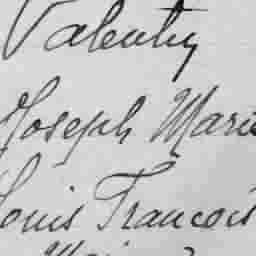 Valentin
Joseph Marie
Louis Francois